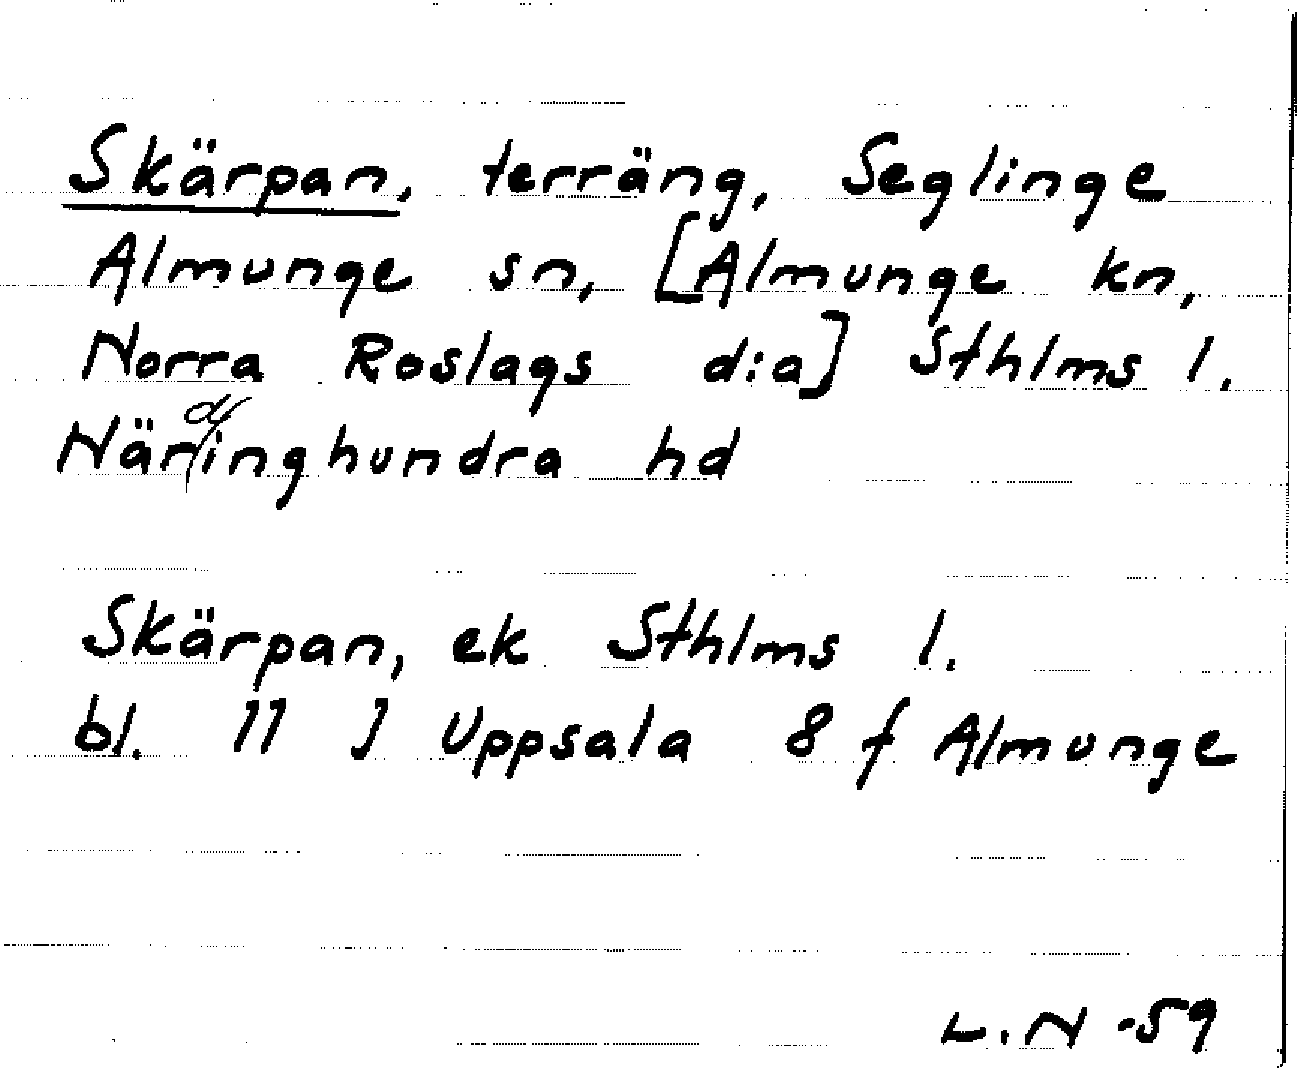 Skärpan, terräng, Seglinge
Almunge sn, [Almunge kn,
Norra Roslags d:a] Sthlms l.
Närdinghundra hd
Skärpan, ek Sthlms l.
bl. 11 J Uppsala 8 f Almunge
L.N -59